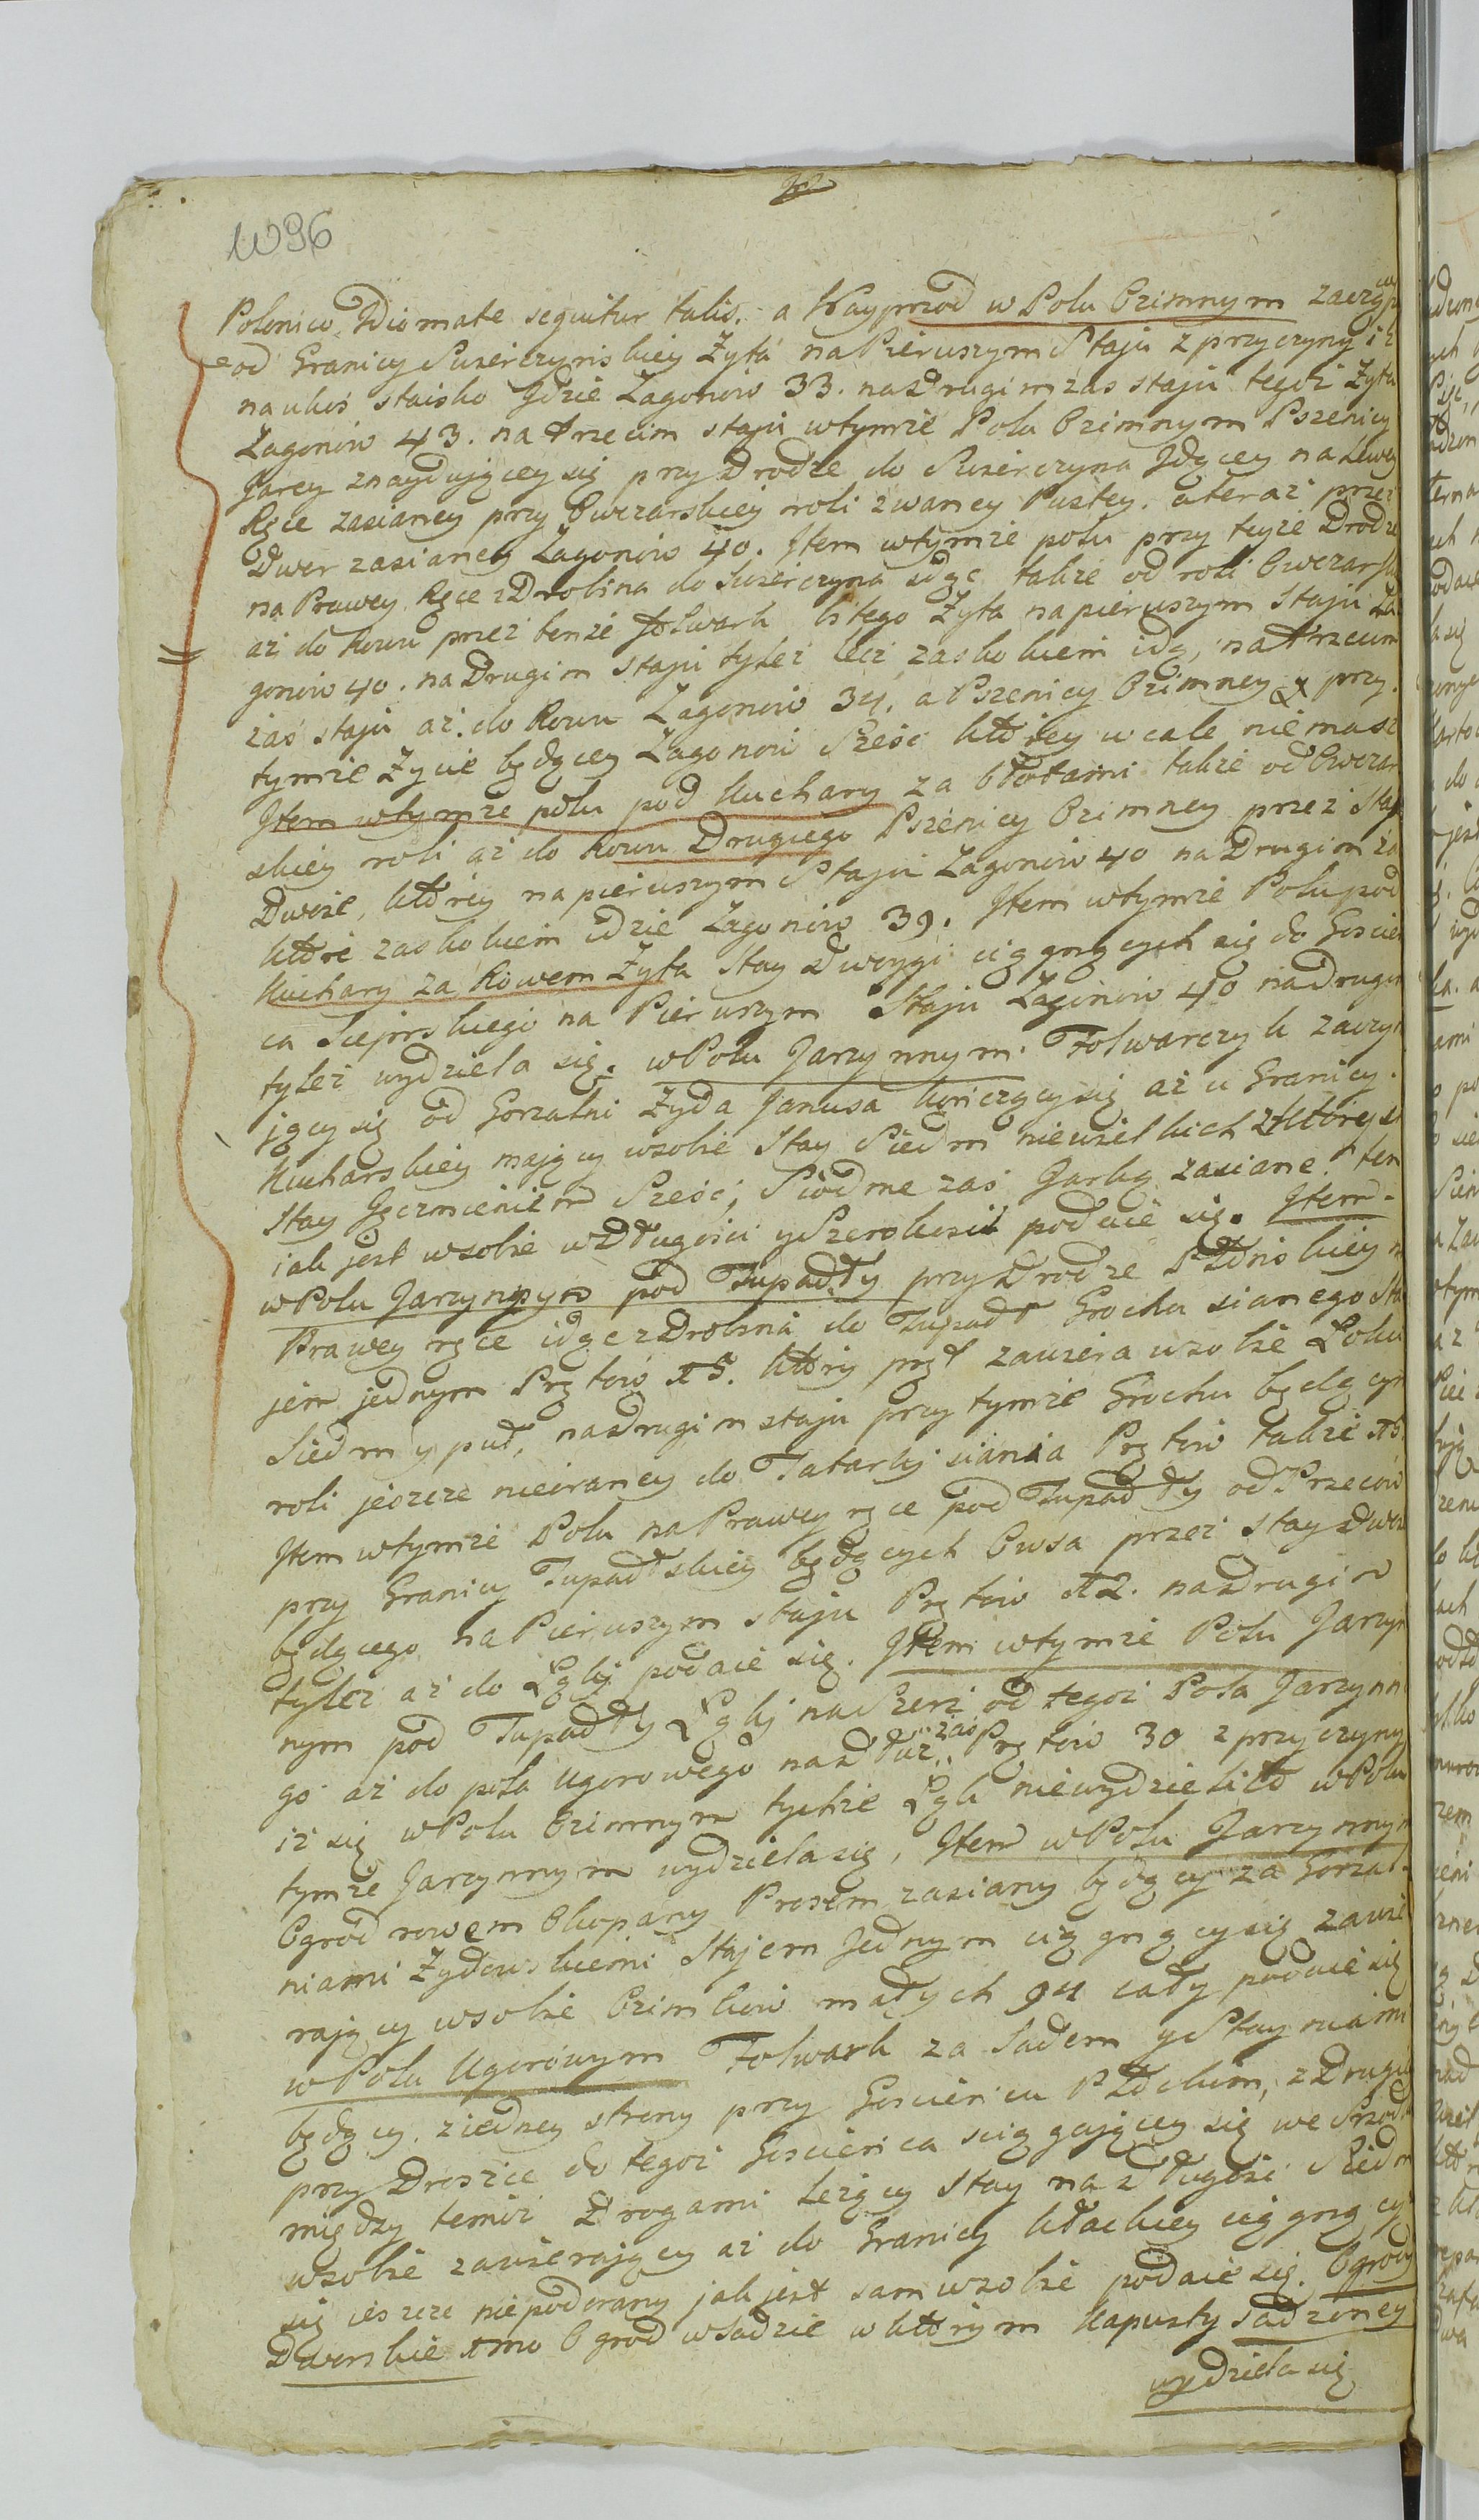 1096
Polonico Idiomate sequitur talis. a Nayprzod w Polu Ozimnym zaczą
od Granicy Swierczynskiey Żyta na Pierwszym Staju z przyczyny iż
na ukos staisko Idzie Zagonow 33. na Drugim zas staju tegoż Żyta
Zagonów 43. na trzecim staju wtymże Polu Ozimnym Pszenicy
Jarey znayduiącey się przy Drodze do Swierczyna Idącey na Lewey
Ręce zasianey przy Owczarskiey roli zwaney Pustey. a teraz przez
Dwor zasianey Zagonów 40. Item wtymże polu przy teyże Drodze
na Prawey Ręce z Drobina do Swierczyna idąc także od roli Owczarsk
aż do Rowu przez tenże folwark litego Żyta na pierwszym Staju Za
gonów 40. na Drugim Staju tyleż lecz zaskokiem idą, na trzecim
zaś staju aż do Rowu Zagonów 34. a Pszenicy Ozimney przy
tymże Życie będącey Zagonow Sześć ktorey wcale niemasz
Item wtymże polu pod Kuchary za błotami także od Owczar
skiey roli aż do Rowu Drugiego Pszenicy Ozimney przez Staj
Dwoie, ktorey na pierwszym Staju Zagonów 40 na Drugim za
ktore zaskokiem idzie Zagonów 39. Item wtymże Polu pod
Kuchary za Rowem Żyta Stay Dwoygi ciągnących się do Goscień
ca Sieprskiego na Pierwszym Staju Zagonow 40 na Drugim
tyleż wydziela się. w Polu Jarzynnym. Folwarczyk zaczyn
jący się od Gorzalni Żyda Janusa kończący się aż u Granicy
Kucharskiey mający wsobie Stay Siedm niewielkich z ktorych
Stay Jęczmieniem Sześć, Siodme zaś Garką zasiane. ten
iak jest wsobie w Długości y Szerokości podaie się. Item
w Polu Jarzynnym pod Tupadły przy Drodze Płońskiey n
Prawey ręce idąc z Drobina do Tupadł Grochu sianego Sta
jem jednym Prętow 15. ktory pręt zawiera wsobie Łokci
Siedm y puł, na Drugim staju przy tymże Grochu będącym
roli jeszcze nieoraney do Tatarki siania Prętów także 15.
Item wtymże Polu na Prawey ręce pod Tupadły od Przecow
przy Granicy Tupadłskiey będących Owsa przez Stay Dwo
będącego na Pierwszym staju Prętów 12. na Drugim
tyleż aż do Łąki podaie się. Item wtymże Polu Jarzyn
nym pod Tupadły Łąki na Szerz od tegoż Pola Jarzynn
go aż do pola Ugorowego na Dłuż zaś Prętów 30 z przyczyny
iż się w Polu Ozimnym tychże Łąk niewydzieliło w Polu
tymże Jarzynnym wydziela się, Item w Polu Jarzynnym
Ogrod rowem Okopany Prosem zasiany będący za Gorzal-
niami Żydowskiemi Stajem Jednym ciągnący się zawie
rający wsobie Ozimkow małych 94 cały podaie się
w Polu Ugorowym Folwark za Sadem y Stayniami
będący. ziedney strony przy Goscieńcu Płockim, z Drugiey
przy Drożce do tegoż Goscieńca sciągającey się we Srzod
między temiż Drogami Leżący Stay na z Długość Siedm
wsobie zawierający aż do Granicy Kłackiey ciągnący
się ieszcze niepodorany jak jest sam wsobie podaie się. Ogrody
Dworskie 1mo Ogrod w Sadzie w ktorym Kapusty Sadzoney
wydziela się